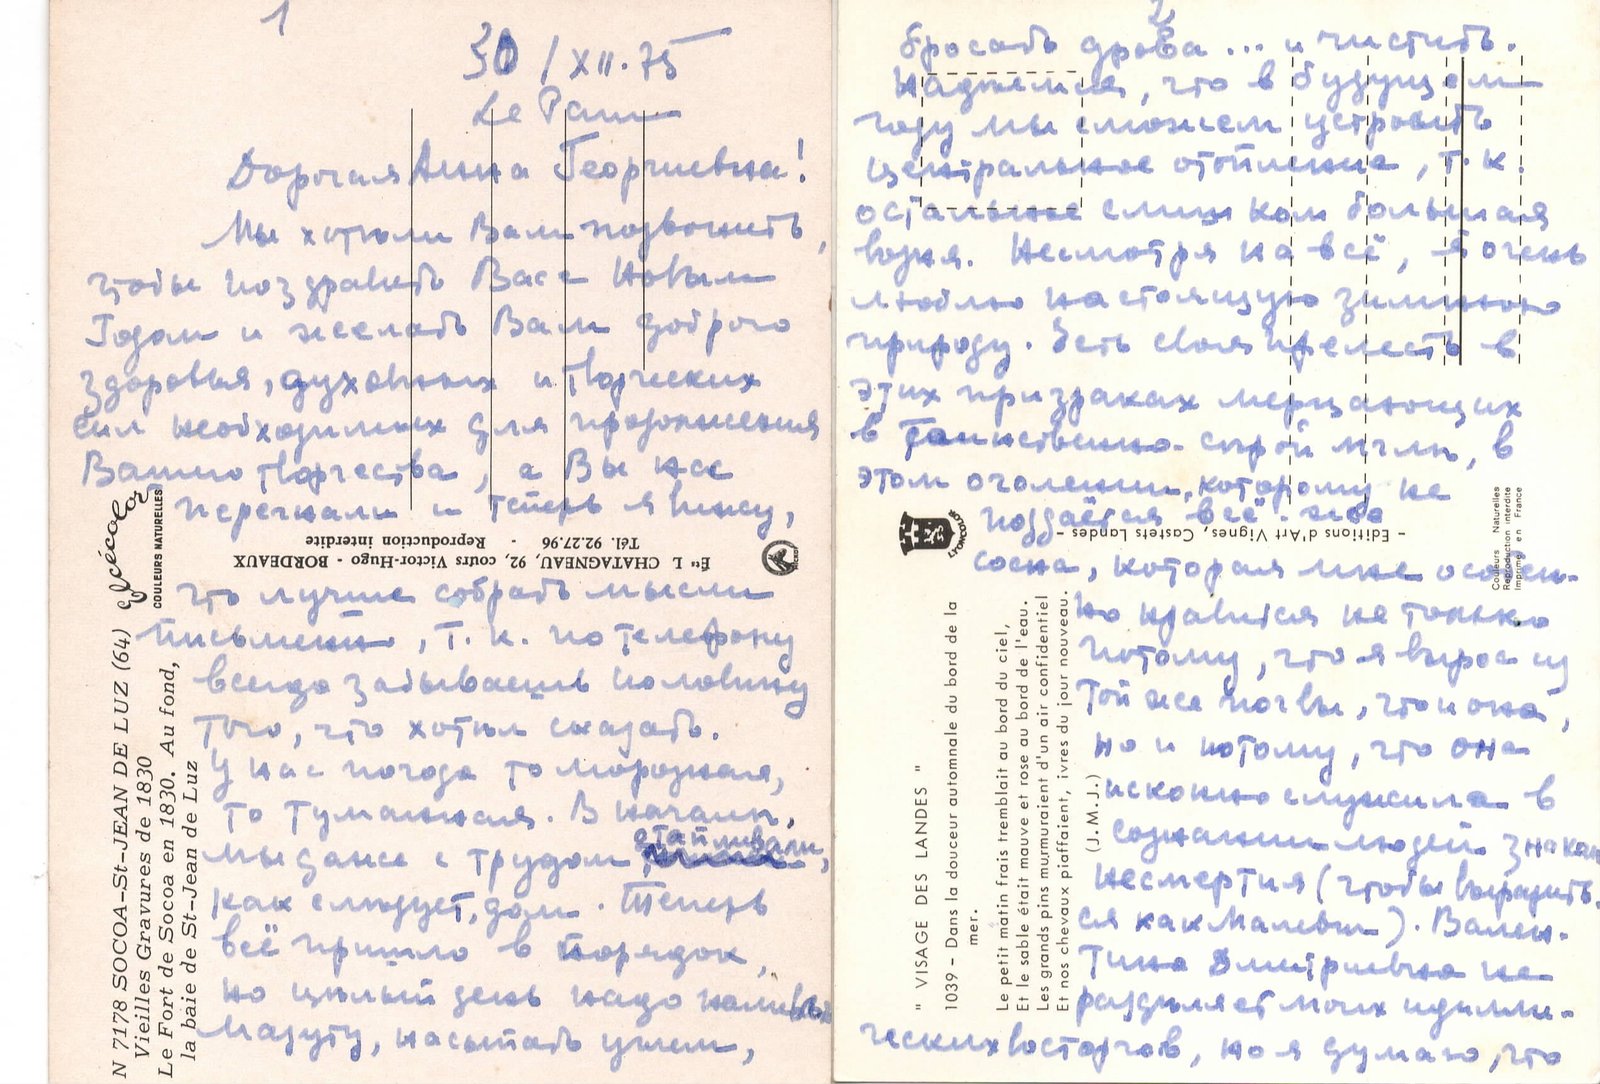 1
30/XII.75
Le Pam
Дорогая Анна Георгиевна!
Мы хотели Вам позвонить,
чтобы поздравить Вас с Новым
Годом и желать Вам доброго
здоровья, духовных и творческих
сил необходимых для продолжения
Вашего творчества, а Вы нас
перегнали и теперь я пишу,
что лучше собрать мысли
письменно, т.к. по телефону
всегда забываешь половину
того, что хотел сказать.
У нас погода то морозная,
то туманная. В начале,
мы даже с трудом отапливали,
как следует, дом. Теперь
всё пришло в порядок,
но целый день надо наливать
мазуту, насыпать углем,
Ets L. CHATAGNEAU, 92, cours Victor-Hugo - BORDEAUX
Tél. 92.27.96 - Reproduction interdite
COULEURS NATURELLES
N 7178 SOCOA-St-JEAN DE LUZ (64)
Vieilles Gravures de 1830
Le Fort de Socoa en 1830. Au fond,
la baie de St-Jean de Luz
2
бросать дрова... и чистить.
Надеемся, что в будущем
году мы сможем устроить
центральное отопление, т.к.
остальное слишком большая
возня. Несмотря на всё, я очень
люблю настоящую зимнюю
природу. Есть своя прелесть в
этих призраках мерцающих
в таинственно-сырой мгле, в
этом оголении, которому не
поддаётся всё-либо
сосна, которая мне особен-
но нравится не только
потому, что я вырос из
той же почвы, что и она,
но и потому, что она
исконно служила в
сознании людей знаком
бессмертия (чтобы выразить-
ся как Малевич). Вален-
тина Дмитриевна не
разделяет моих идилли-
ческих восторгов, но я думаю, что
- Editions d'Art Vignes, Castets Landes -
LYONCOLOR
Couleurs Naturelles
Reproduction interdite
Imprimé en France
" VISAGE DES LANDES "
1039 - Dans la douceur automnale du bord de la
mer.
Le petit matin frais tremblait au bord du ciel,
Et le sable était mauve et rose au bord de l'eau.
Les grands pins murmuraient d'un air confidentiel
Et nos chevaux piaffaient, ivres du jour nouveau.
(J.M.J.)